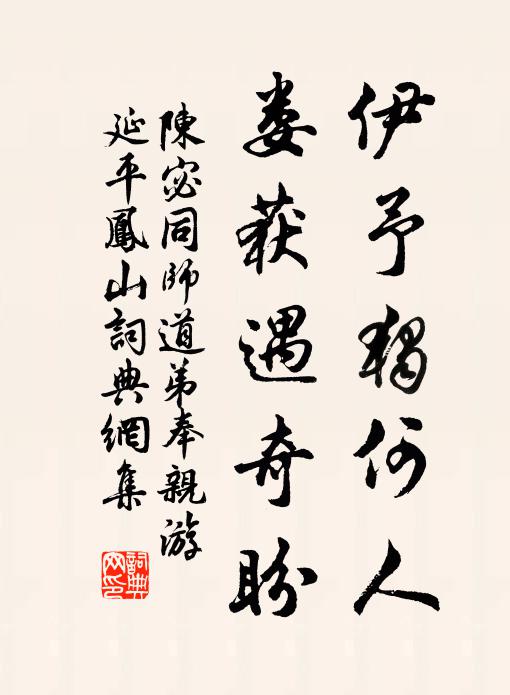 伊予獨何人
婁获遇奇盼
陳宓同師道弟奉親游
延平鳳山詞典網集
詞典
网印